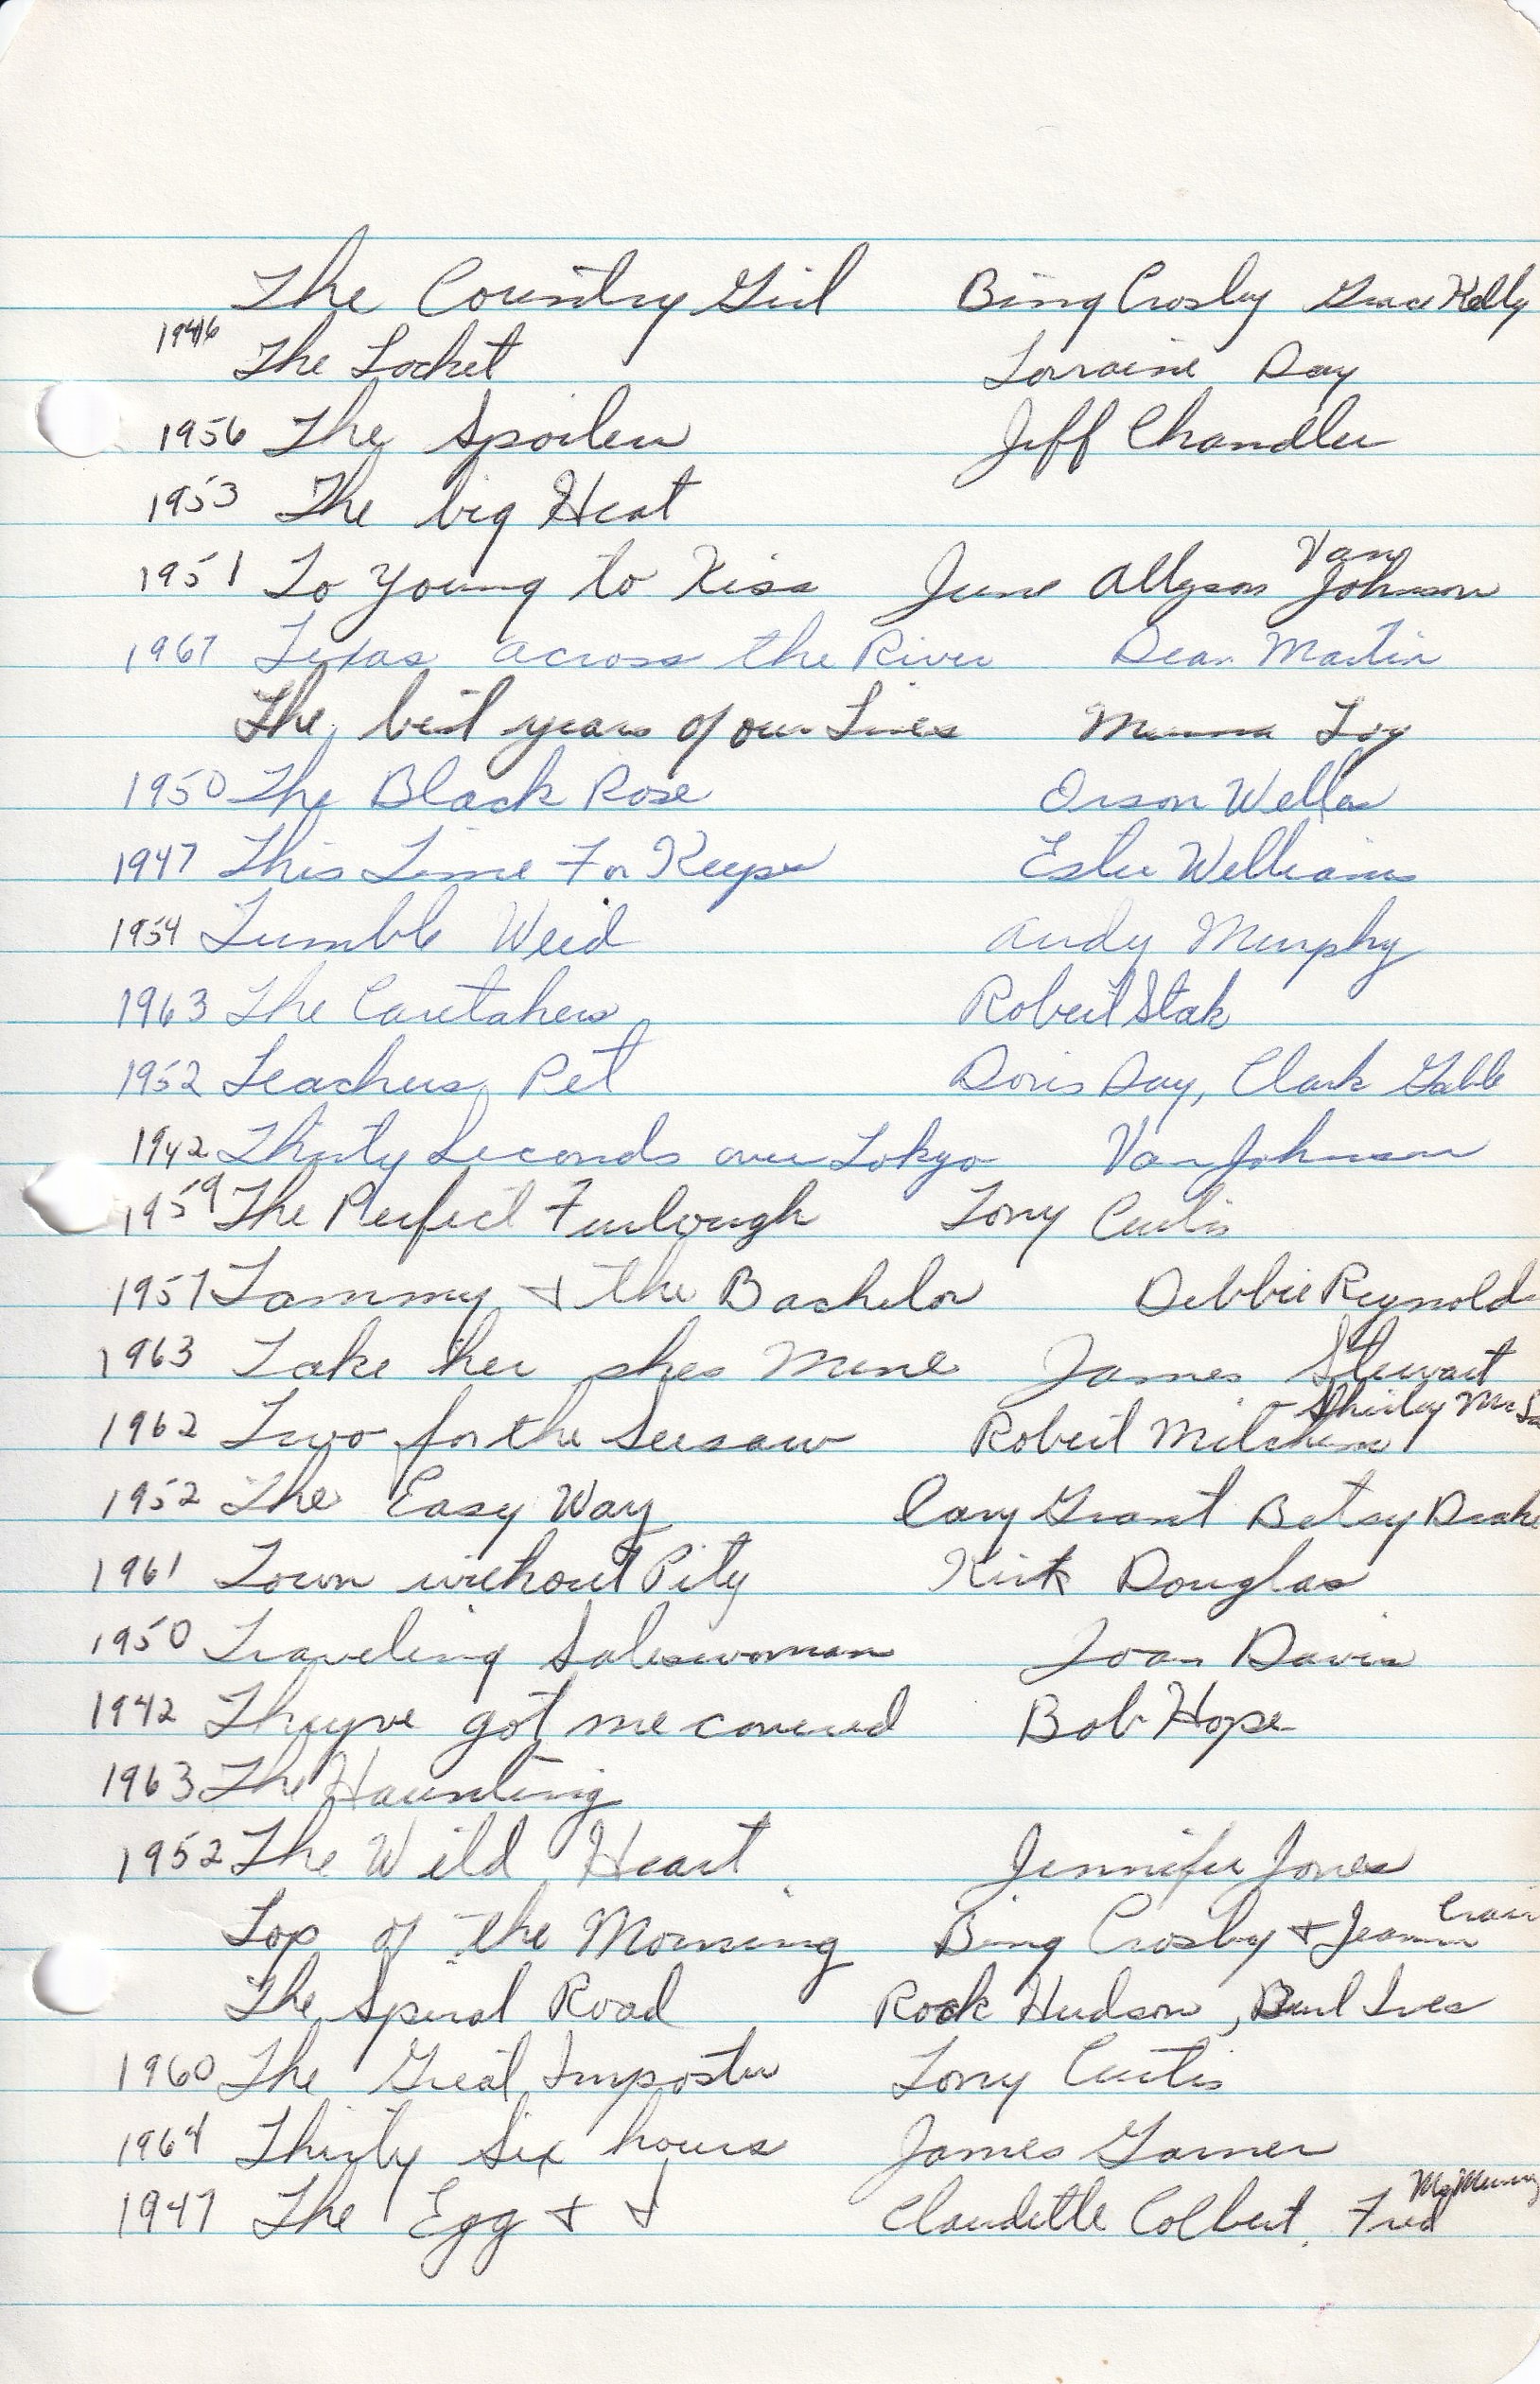 The Country Girl Bing Crosby Grace Kelly
1946 The Locket Lorraine Day
1956 The Spoilers Jeff Chandler
1953 The big Heat
1951 To Young to Kiss June Allyson Van Johnson
1967 Texas across the River Dean Martin
The best years of our Lives Myrna Loy
1950 The Black Rose Orson Welles
1947 This Time For Keeps Ester Williams
1954 Tumble Weed Audy Murphy
1963 The Caretakers Robert Stak
1952 Teachers Pet Doris Day, Clark Gable
1942 Thirty Seconds over Tokyo Van Johnson
1959 The Perfect Furlough Tony Curtis
1957 Tammy + the Bachelor Debbie Reynolds
1963 Take her shes Mine James Stewart
1962 Two for the Seesaw Robert Mitchum Shirley
1952 The Easy Way Cary Grant Betsy Drake
1961 Town without Pity Kirk Douglas
1950 Traveling Saleswoman Joan Davis
1942 Theyve got me covered Bob Hope
1963 The Haunting
1952 The Wild Heart Jennifer Jones
Top of the Morning Bing Crosby + Jeannie Crain
The Spiral Road Rock Hudson, Burl Ives
1960 The Great Imposter Tony Curtis
1964 Thirty Six hours James Garner
1947 The Egg + I Claudette Colbert, Fred McMurray